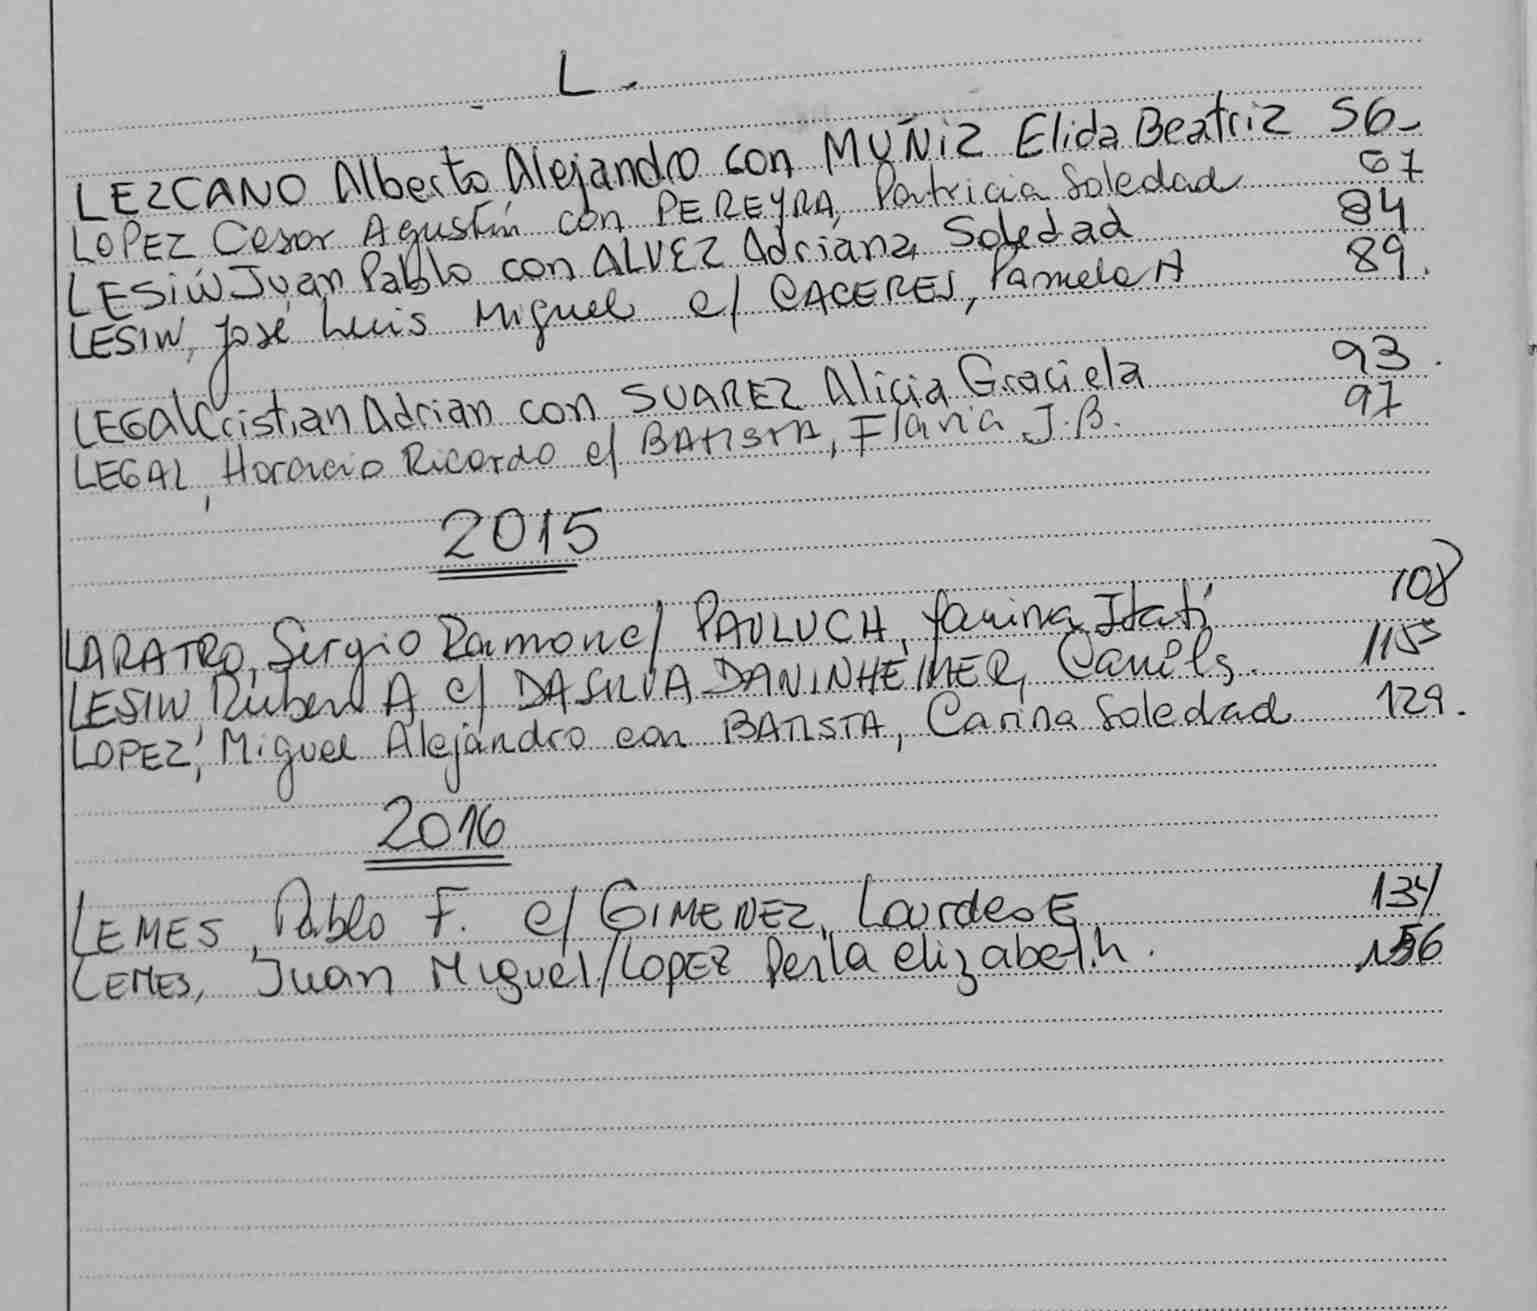 L.
LEZCANO Alberto Alejandro con MUÑIZ Elida Beatriz 56-
LOPEZ Cesar Agustín con PEREYRA, Patricia Soledad 67
LESiW Juan Pablo con ALVEZ Adriana Soledad 84
LESIW, José Luis Miguel c/ CACERES, Pamela A 89.
LEGAL Cristian Adrian con SUAREZ Alicia Graciela 93.
LEGAL, Horacio Ricardo c/ BATISTA, Flavia J.B. 97
2015
LARATRO, Sergio Ramon c/ PAULUCH, Yanina Itatí 108
LESIW Ruben A c/ DA SILVA DANINHEIMER, 115
LOPEZ, Miguel Alejandro con BATISTA, Carina Soledad 129.
2016
LEMES, Pablo F. c/ GIMENEZ, Lourdes E 134
LEMES, Juan Miguel/LOPEZ Perla elizabeth. 156